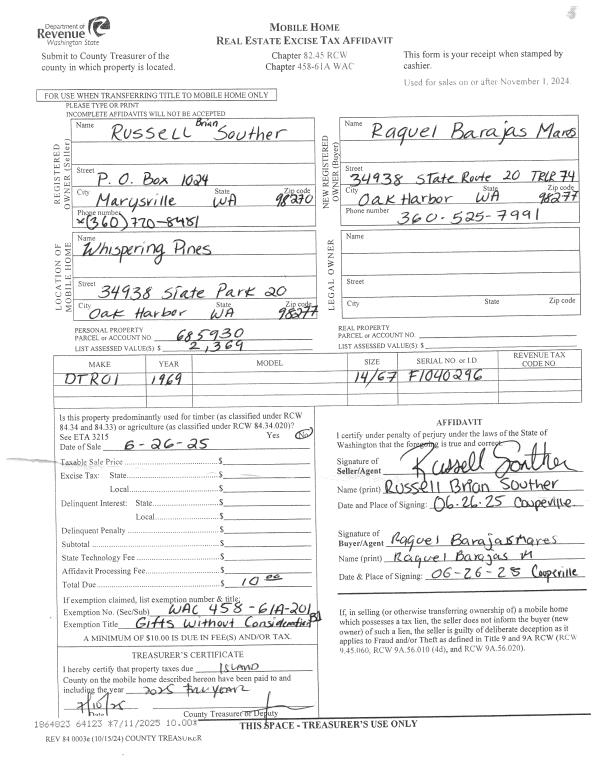 Department of
Revenue
Washington State
MOBILE HOME
REAL ESTATE EXCISE TAX AFFIDAVIT
Submit to County Treasurer of the
county in which property is located.
Chapter 82.45 RCW
Chapter 458-61A WAC
This form is your receipt when stamped by
cashier.
Used for sales on or after November 1, 2024.
FOR USE WHEN TRANSFERRING TITLE TO MOBILE HOME ONLY
PLEASE TYPE OR PRINT
INCOMPLETE AFFIDAVITS WILL NOT BE ACCEPTED
REGISTERED
OWNER (Seller)
Name Russell Brian Souther
Street P.O. Box 1024
City Marysville State WA Zip code 98270
Phone number *(360) 770-8481
NEW REGISTERED
OWNER (Buyer)
Name Raquel Barajas Mares
Street 34938 State Route 20 TRLR 74
City Oak Harbor State WA Zip code 98277
Phone number 360-525-7991
LOCATION OF
MOBILE HOME
Name Whispering Pines
Street 34938 State Park 20
City Oak Harbor State WA Zip code 98277
LEGAL OWNER
Name
Street
City State Zip code
PERSONAL PROPERTY
PARCEL or ACCOUNT NO. 685930
LIST ASSESSED VALUE(S) $ 2,369
REAL PROPERTY
PARCEL or ACCOUNT NO.
LIST ASSESSED VALUE(S) $
MAKE YEAR MODEL SIZE SERIAL NO or I.D REVENUE TAX CODE NO
DTROI 1969 14/67 F1040296
Is this property predominantly used for timber (as classified under RCW
84.34 and 84.33) or agriculture (as classified under RCW 84.34.020)?
See ETA 3215 Yes No
Date of Sale 6-26-25
Taxable Sale Price $
Excise Tax: State $
Local $
Delinquent Interest: State $
Local $
Delinquent Penalty $
Subtotal $
State Technology Fee $
Affidavit Processing Fee $
Total Due $ 10 00
If exemption claimed, list exemption number & title:
Exemption No. (Sec/Sub) WAC 458-61A-201
Exemption Title Gifts Without Consideration
A MINIMUM OF $10.00 IS DUE IN FEE(S) AND/OR TAX.
AFFIDAVIT
I certify under penalty of perjury under the laws of the State of
Washington that the foregoing is true and correct.
Signature of
Seller/Agent Russell Souther
Name (print) Russell Brian Souther
Date and Place of Signing: 06.26.25 Coupeville
Signature of
Buyer/Agent Raquel Barajas Mares
Name (print) Raquel Barajas M
Date & Place of Signing: 06-26-25 Coupeville
If, in selling (or otherwise transferring ownership of) a mobile home
which possesses a tax lien, the seller does not inform the buyer (new
owner) of such a lien, the seller is guilty of deliberate deception as it
applies to Fraud and/or Theft as defined in Title 9 and 9A RCW (RCW
9.45.060, RCW 9A.56.010 (4d), and RCW 9A.56.020).
TREASURER'S CERTIFICATE
I hereby certify that property taxes due ISLAND
County on the mobile home described hereon have been paid to and
including the year 2025 full year
7/10/25
Date County Treasurer or Deputy
1864823 64123 *7/11/2025 10.00*
THIS SPACE - TREASURER'S USE ONLY
REV 84 0003e (10/15/24) COUNTY TREASURER